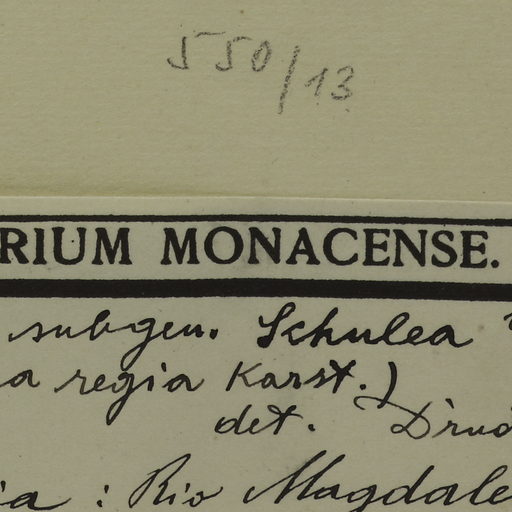 550/13
RIUM MONACENSE.
subgen. Schulea
a regia Karst.)
det. Drud
ia : Rio Magdale